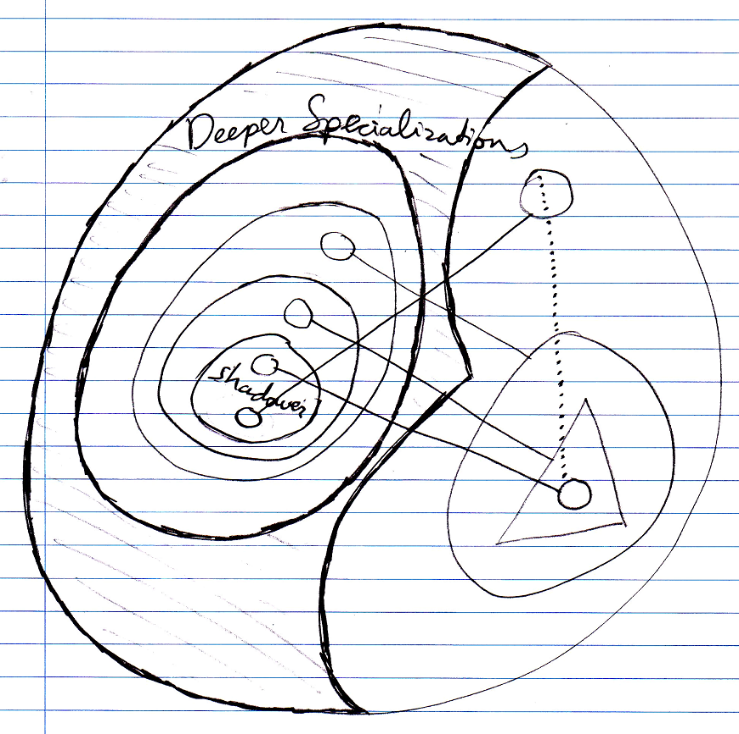 Deeper Specializations
shadower